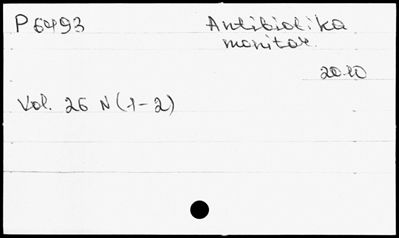 P 6493
Antibiotika
monitor.
2010
Vol. 26 N (1-2)